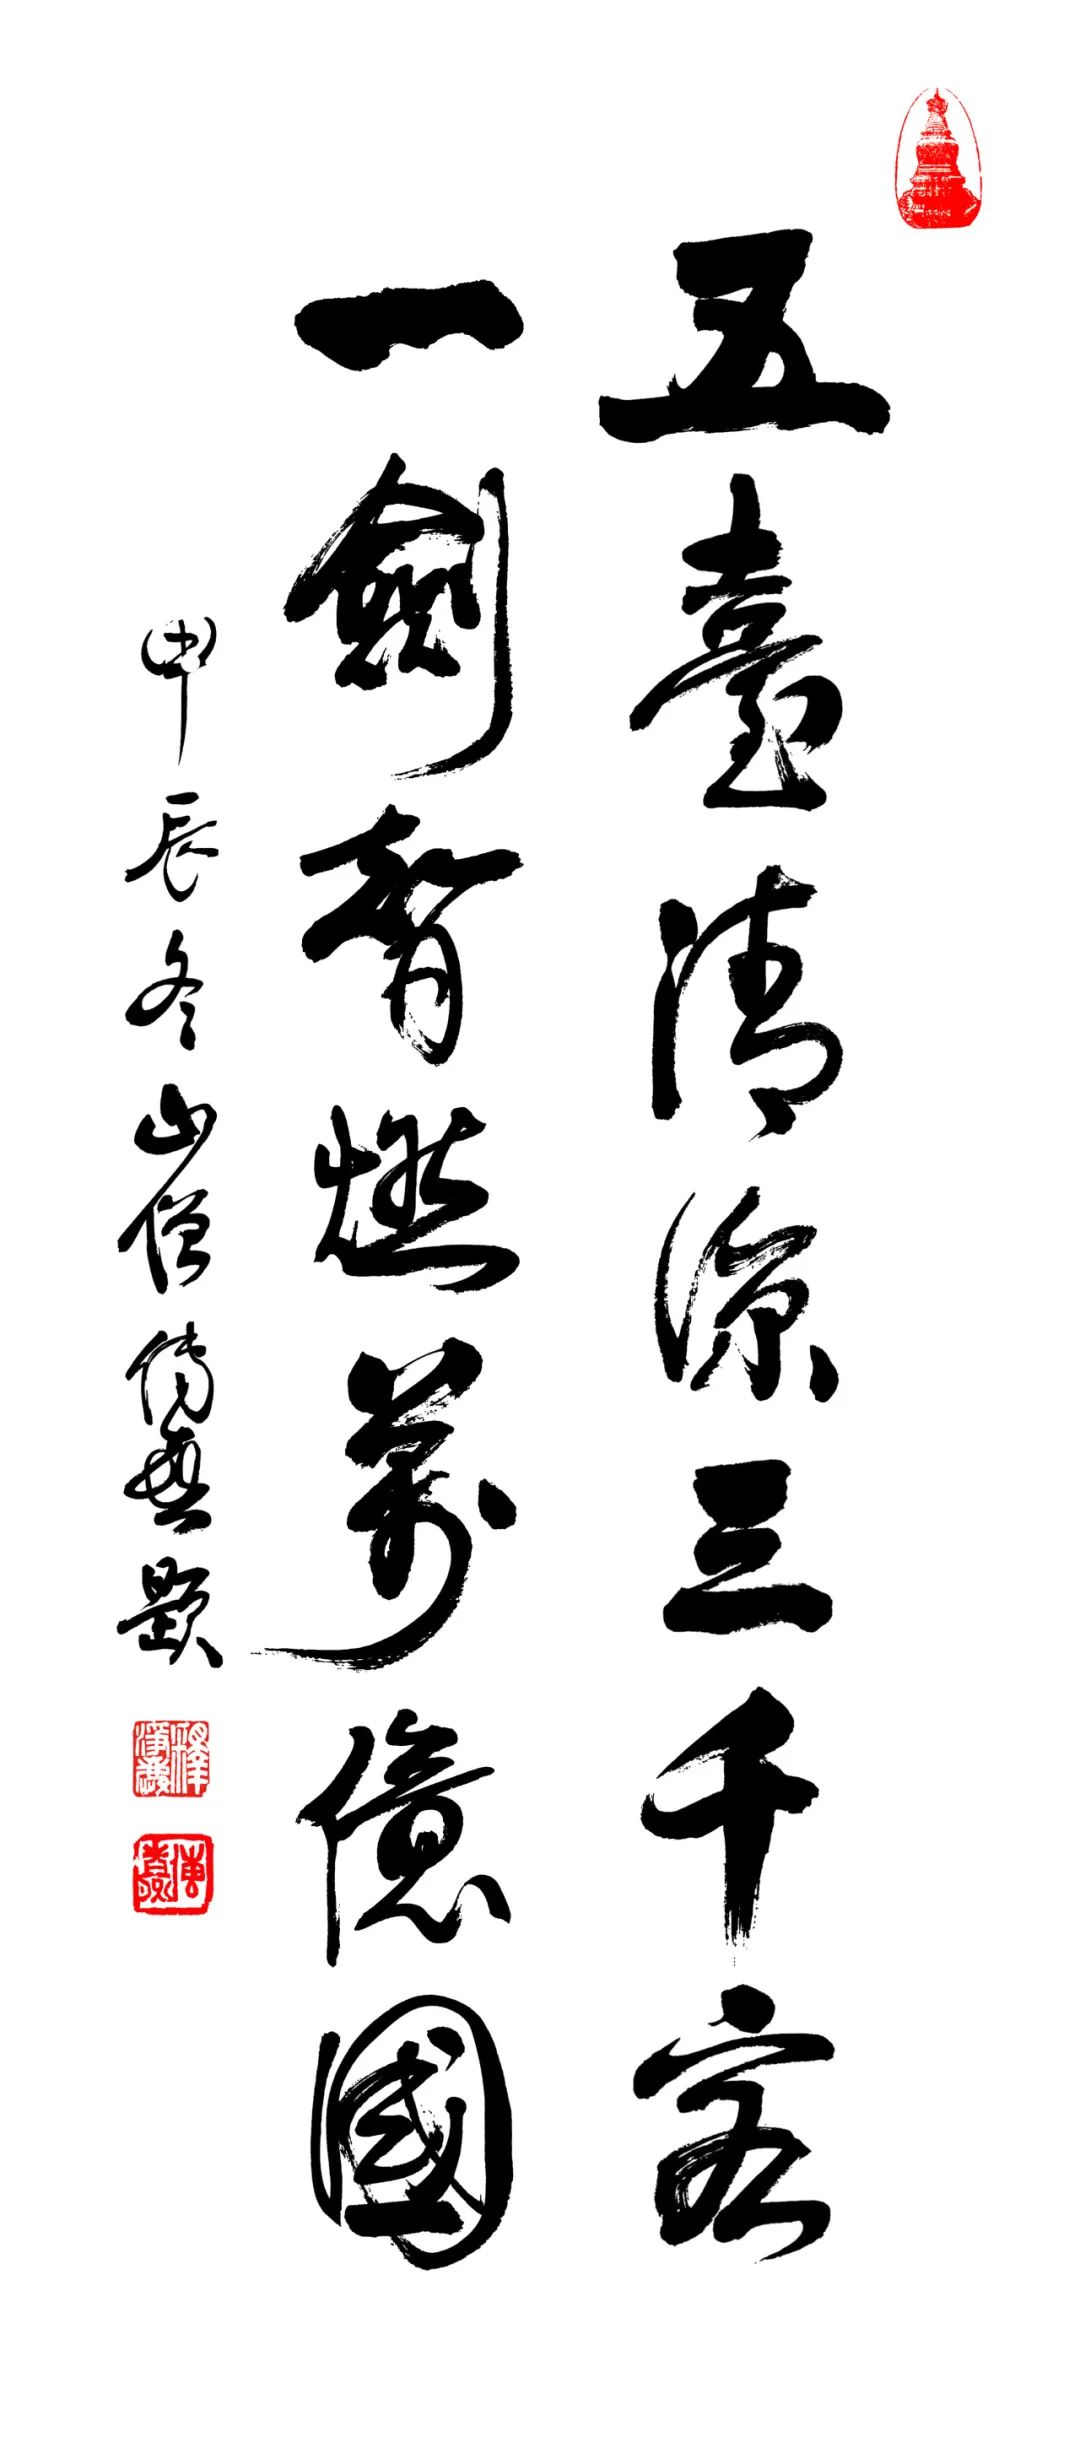 五臺清涼三千客
一劍智燃萬億國
甲辰冬山僧傳喜題